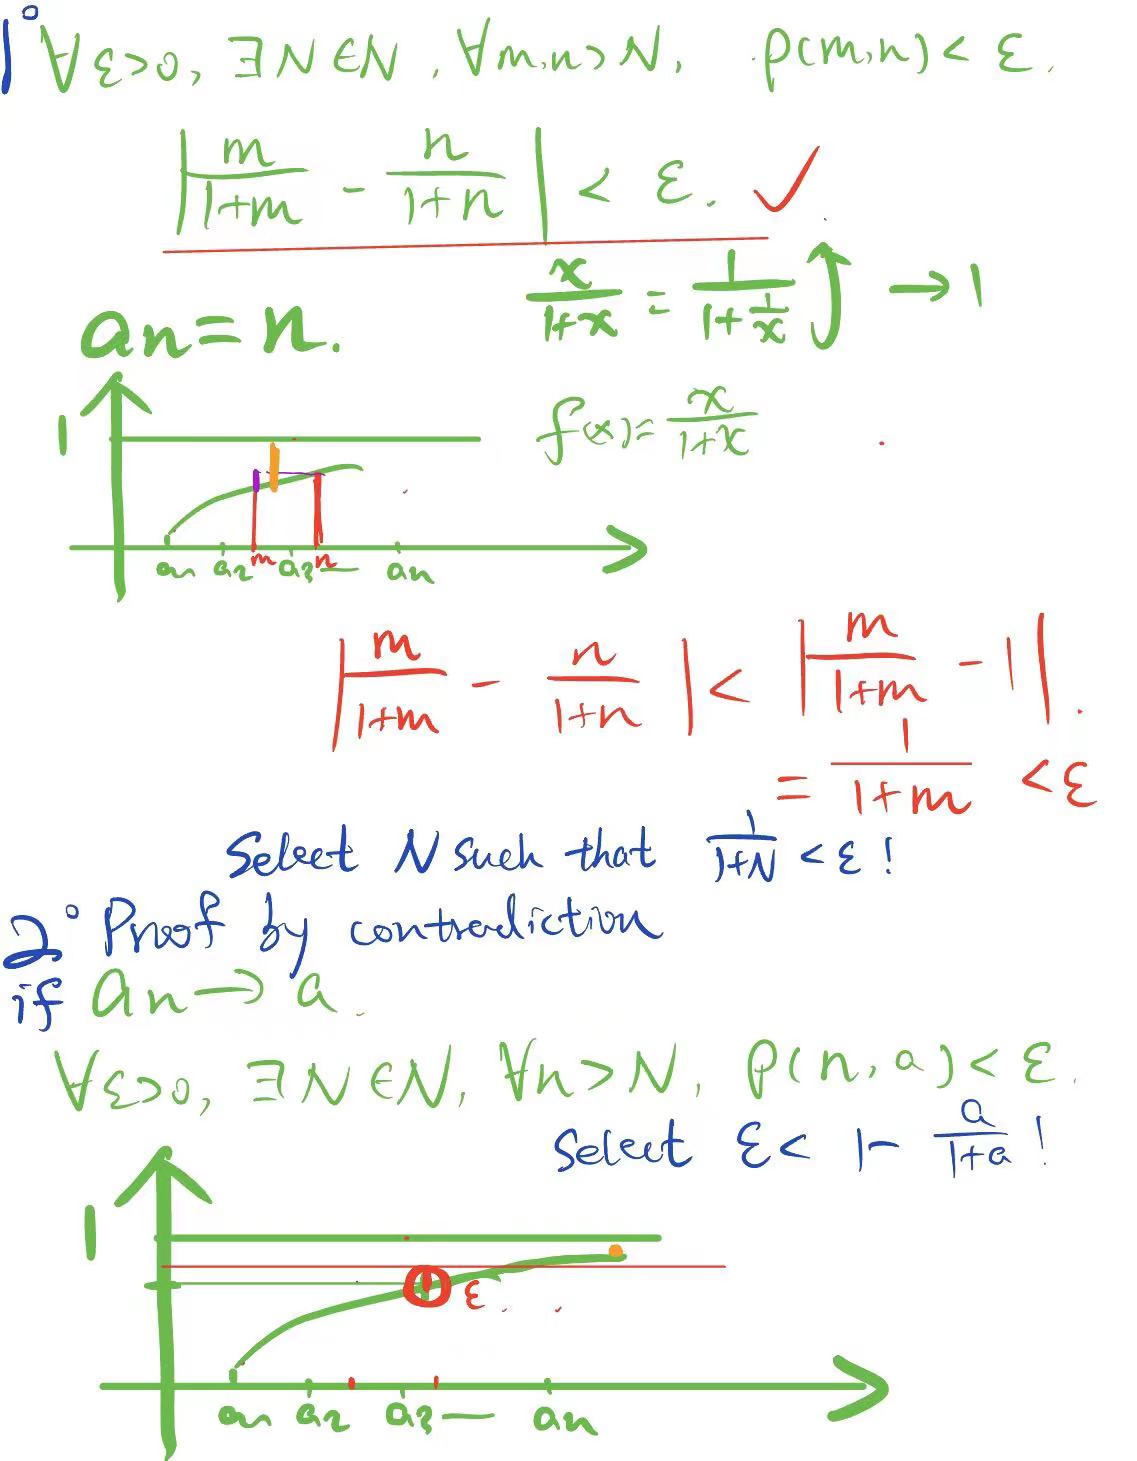 1° ∀ε>0, ∃N∈N, ∀m,n>N, ρ(m,n)<ε.
|m/(1+m) - n/(1+n)| < ε. ✓
x/(1+x) = 1/(1+1/x) ↑ → 1
an=n.
1
f(x)=x/(1+x)
a1 a2 m a3 n — an
|m/(1+m) - n/(1+n)| < |m/(1+m) - 1|.
= 1/(1+m) < ε
Select N such that 1/(1+N) < ε !
2° Proof by contradiction
if an → a.
∀ε>0, ∃N∈N, ∀n>N, ρ(n,a)<ε.
Select ε < 1 - a/(1+a) !
1
ε
a1 a2 a3 — an